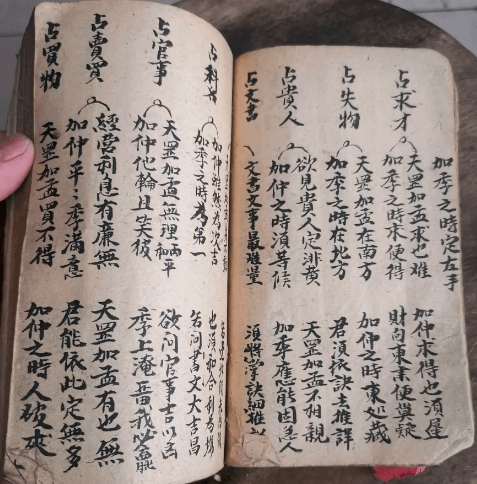 加季之時定左手
占求才
天罡加孟求也难
加季之時求便得
加仲求得也須遲
財向東求便無疑
占失物
天罡加孟在南方
加季之時在地方
加仲之時東処藏
君須依訣去推詳
占貴人
欲見貴人定
加仲之時須等候
天罡加孟不相親
加季應能因
占文書
文書文事最難量
須將掌訣細推
占科名
加仲雖然為次吉
加季之時為第一
也須和合利為場
若問書文大吉昌
占官事
天罡加孟無理兩平和
加仲他輪且失彼
欲問官事吉以凶
季上淹留我必
占賣買
經营利息有薦無
加仲平平季滿意
天罡加孟有也無
君能依此定無多
占買物
天罡加孟買不得
加仲之時人彼求